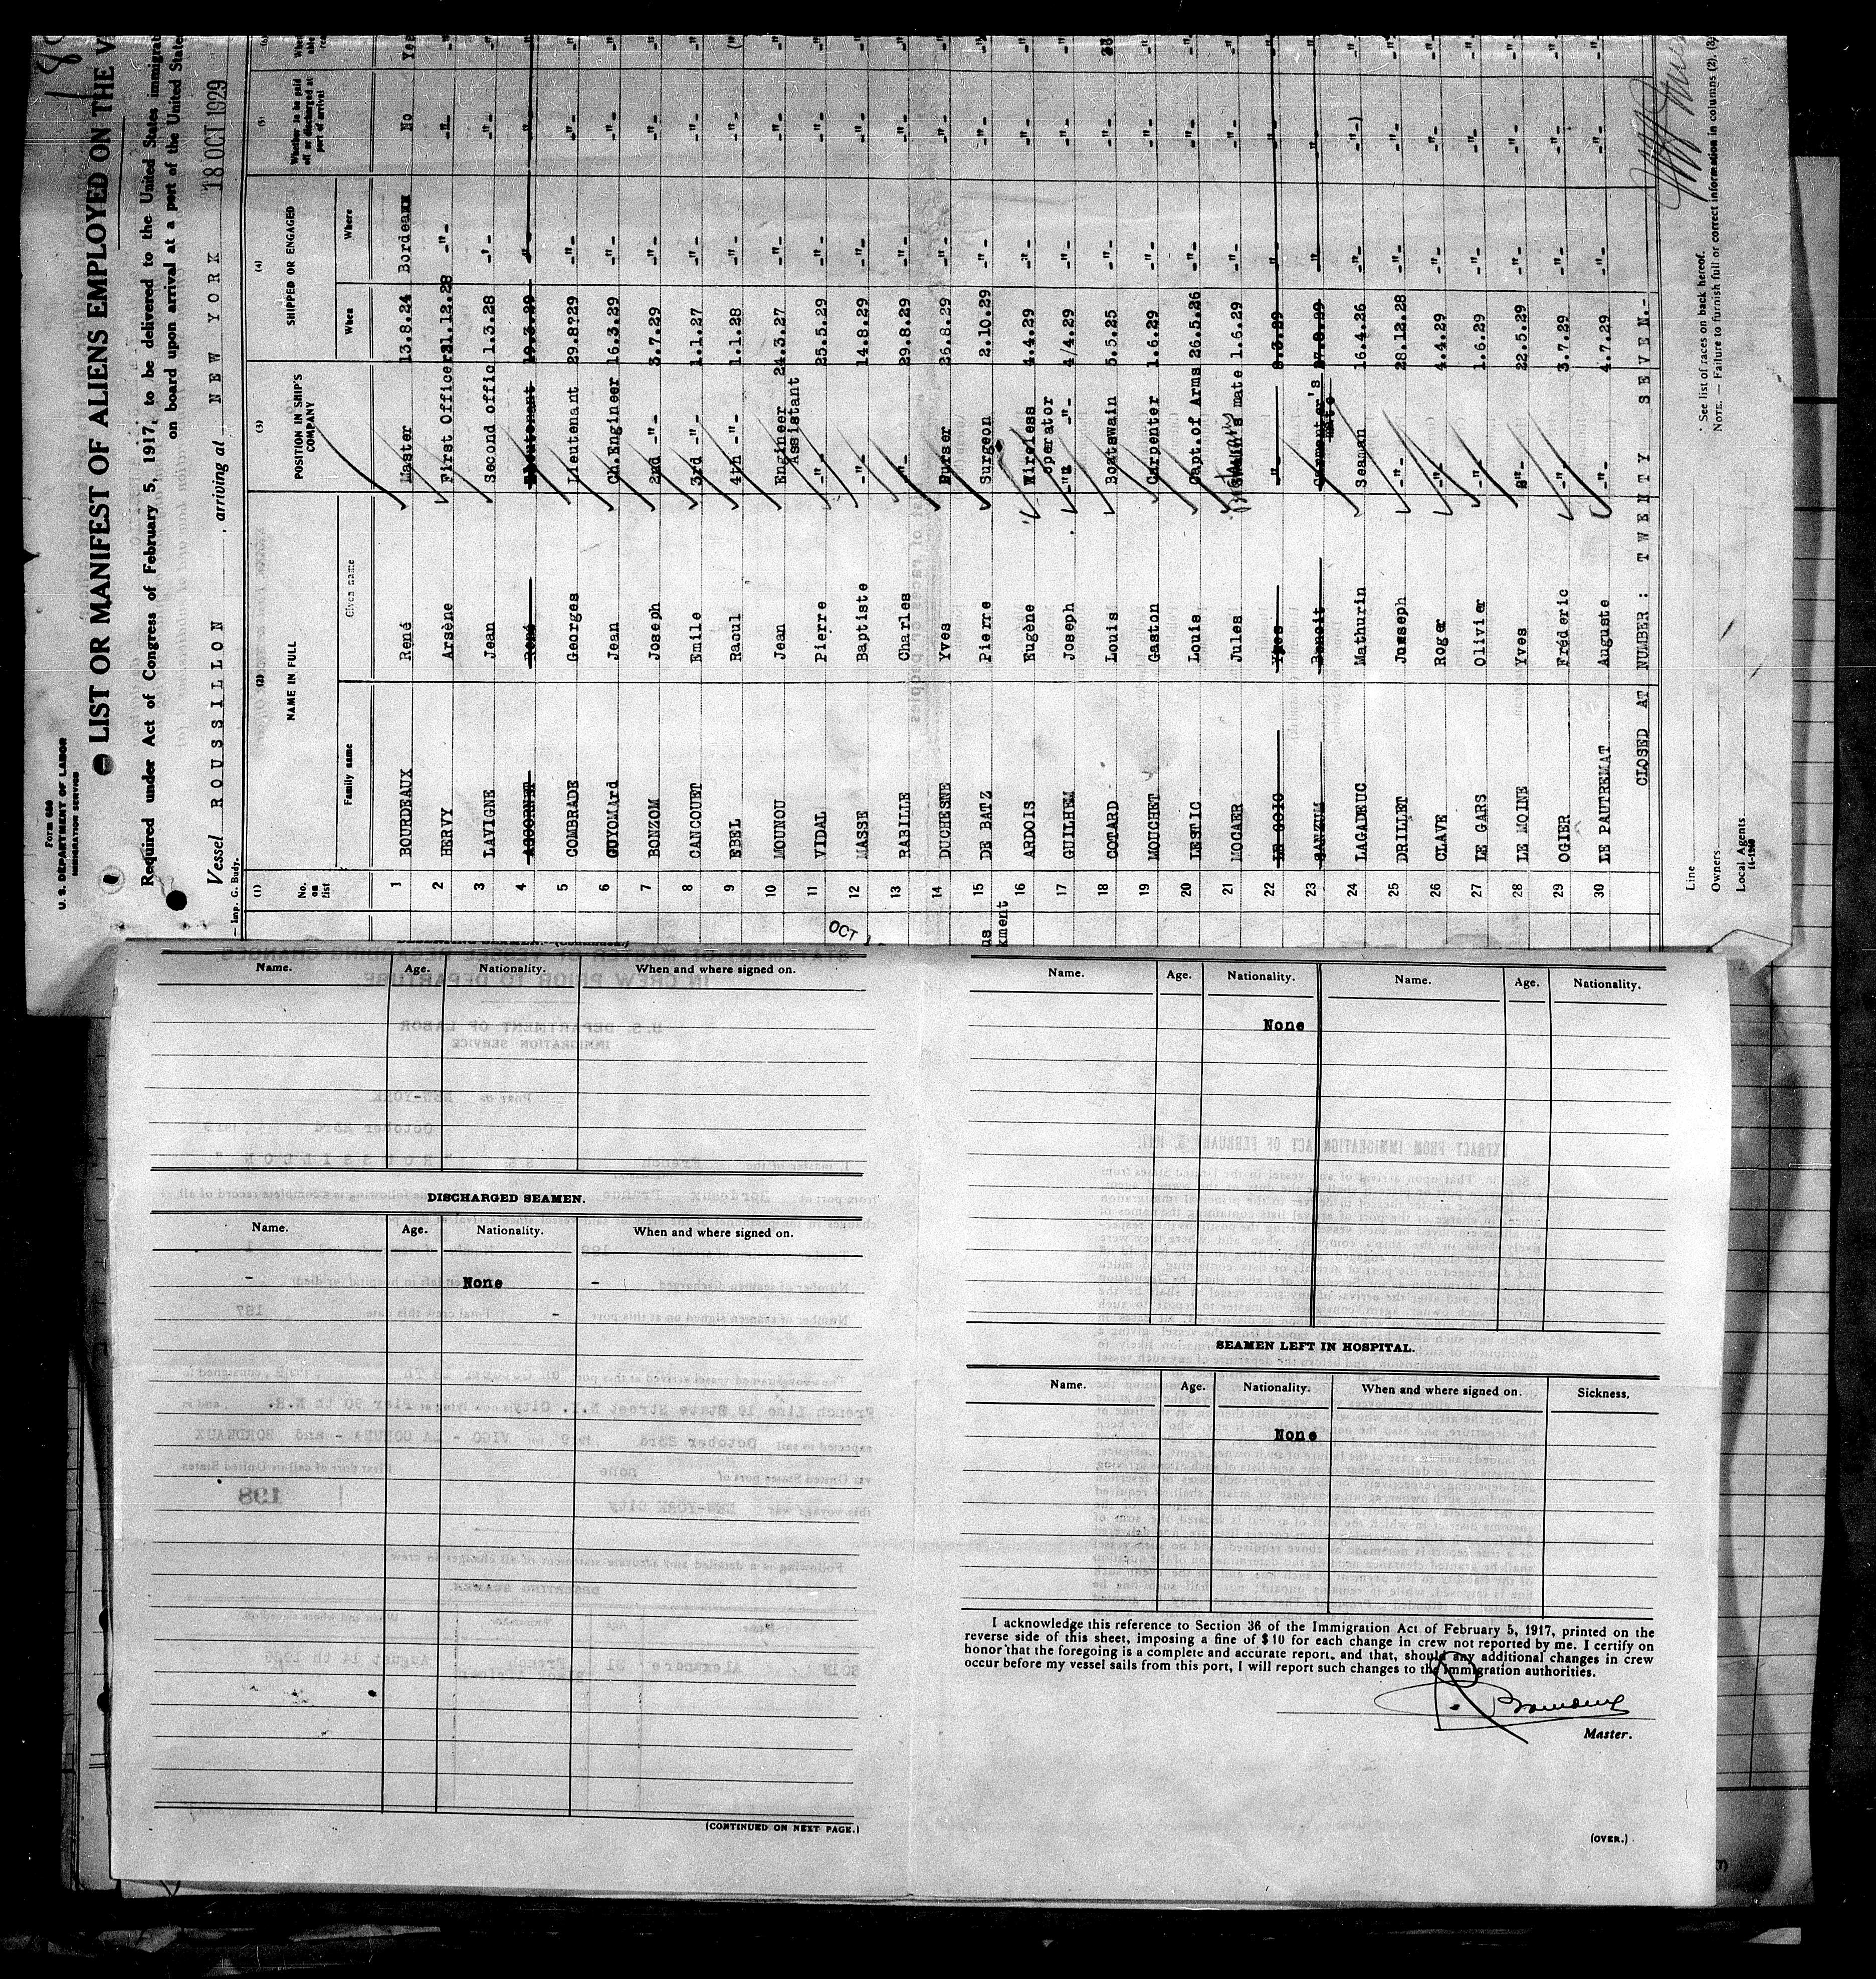 Form 680
U. S. DEPARTMENT OF LABOR
IMMIGRATION SERVICE
LIST OR MANIFEST OF ALIENS EMPLOYED ON THE V
Required under Act of Congress of February 5, 1917, to be delivered to the United States immigrat
on board upon arrival at a port of the United State
Vessel ROUSSILLON , arriving at NEW YORK 18 OCT 1929
— Imp. G. Budy.
(1) (2) (3) (4) (5) (6)
No. on list NAME IN FULL POSITION IN SHIP'S COMPANY SHIPPED OR ENGAGED Whether to be paid off or discharged at port of arrival
Family name Given name When Where
1 BOURDEAUX René Master 13.8.24 Bordeaux No Yes
2 HERVY Arsène First Officer 21.12.28 -"- -"- -"-
3 LAVIGNE Jean Second offic 1.3.28 -"- -"- -"-
4 René Lieutenant 19.3.29 -"- -"- -"-
5 COMBRADE Georges Lieutenant 29.8?29 -"- -"- -"-
6 GUYOMArd Jean Ch.Engineer 16.3.29 -"- -"- -"-
7 BONZOM Joseph 2nd -"- 3.7.29 -"- -"- -"-
8 CANCOUET Emile 3rd -"- 1.1.27 -"- -"- -"-
9 EBEL Raoul 4th -"- 1.1.28 -"- -"-
10 MOUNOU Jean Engineer Assistant 24.3.27 -"- -"- -"-
11 VIDAL Pierre -"- 25.5.29 -"- -"- -"-
12 MASSE Baptiste -"- 14.8.29 -"- -"- -"-
13 RABILLE Charles -"- 29.8.29 -"- -"- -"-
14 DUCHESNE Yves Purser 26.8.29 -"- -"- -"-
15 DE BATZ Pierre Surgeon 2.10.29 -"- -"- -"-
16 ARDOIS Eugène Wireless operator 4.4.29 -"- -"- -"-
17 GUILHEM Joseph -"- -"- 4/4.29 -"- -"- -"-
18 COTARD Louis Boatswain 5.5.25 -"- -"-
19 MOUCHET Gaston Carpenter 1.6.29 -"- -"- -"-
20 LESTIC Louis Capt.of Arms 26.5.26 -"- -"- -"-
21 MOCAER Jules mate 1.6.29 -"- -"- -"-
22 LE GOIC Yves -"- 8.3.29 -"- -"- -"-
23 SANZUM Benoit Carpenter's mate 27.8.29 -"- -"- -"-
24 LAGADEUC Mathurin Seaman 16.4.26 -"- -"-) -"-
25 DRILLET Jos​seph -"- 28.12.28 -"- -"- -"-
26 CLAVE Roger -"- 4.4.29 -"- -"- -"-
27 LE GARS Olivier -"- 1.6.29 -"- -"- -"-
28 LE MOINE Yves -"- 22.5.29 -"- -"- -"-
29 OGIER Fréderic -"- 3.7.29 -"- -"- -"-
30 LE PAUTREMAT Auguste -"- 4.7.29 -"- -"- -"-
CLOSED AT NUMBER : TWENTY SEVEN.-
Line
Owners
Local Agents
14-1240
* See list of races on back hereof.
NOTE. — Failure to furnish full or correct information in columns (2), (3)
OCT
us
kment
Name. Age. Nationality. When and where signed on.
DISCHARGED SEAMEN.
Name. Age. Nationality. When and where signed on.
- None -
-
(CONTINUED ON NEXT PAGE.)
Name. Age. Nationality. Name. Age. Nationality.
None
SEAMEN LEFT IN HOSPITAL.
Name. Age. Nationality. When and where signed on. Sickness.
None
I acknowledge this reference to Section 36 of the Immigration Act of February 5, 1917, printed on the
reverse side of this sheet, imposing a fine of $10 for each change in crew not reported by me. I certify on
honor that the foregoing is a complete and accurate report, and that, should any additional changes in crew
occur before my vessel sails from this port, I will report such changes to the immigration authorities.
Master.
(OVER.)